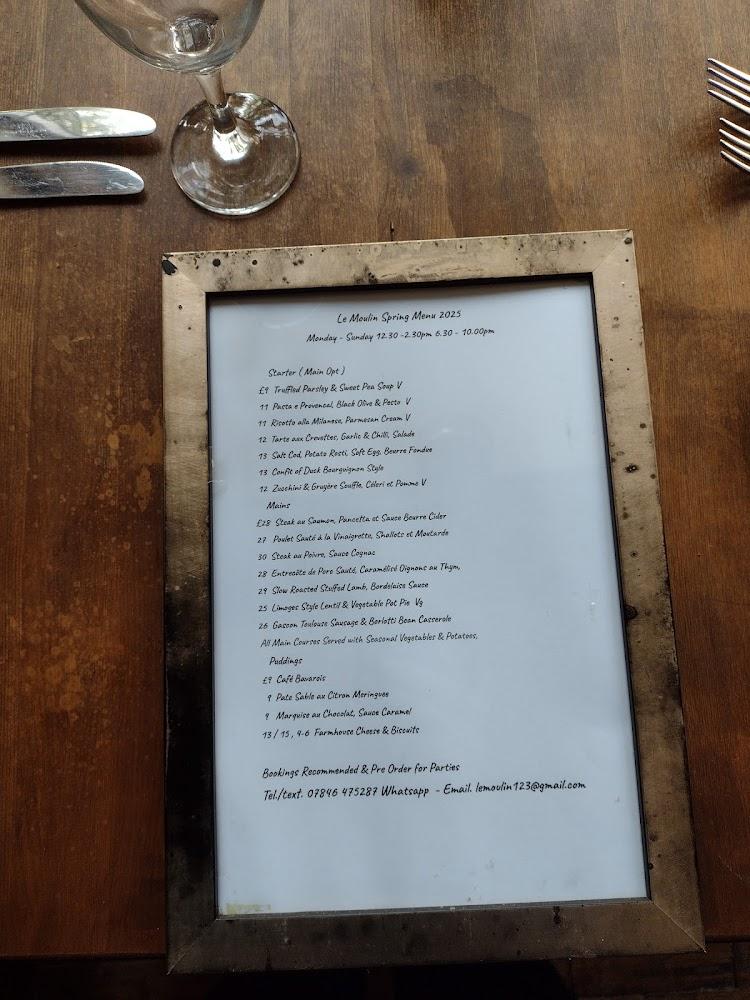 Le Moulin Spring Menu 2025
Monday - Sunday 12.30 -2.30pm 6.30 - 10.00pm
Starter ( Main Opt )
£9 Truffled Parsley & Sweet Pea Soup V
11 Pasta e Provencal, Black Olive & Pesto V
11 Risotto alla Milanese, Parmesan Cream V
12 Tarte aux Crevettes, Garlic & Chilli, Salade
13 Salt Cod, Potato Rosti, Soft Egg, Beurre Fondue
13 Confit of Duck Bourguignon Style
12 Zucchini & Gruyère Souffle, Céleri et Pomme V
Mains
£28 Steak au Saumon, Pancetta et Sauce Beurre Cider
27 Poulet Sauté à la Vinaigrette, Shallots et Moutarde
30 Steak au Poivre, Sauce Cognac
28 Entrecôte de Porc Sauté, Caramélisé Oignons au Thym,
29 Slow Roasted Stuffed Lamb, Bordelaise Sauce
25 Limoges Style Lentil & Vegetable Pot Pie Vg
26 Gascon Toulouse Sausage & Borlotti Bean Casserole
All Main Courses Served with Seasonal Vegetables & Potatoes,
Puddings
£9 Café Bavarois
9 Pate Sable au Citron Meringuee
9 Marquise au Chocolat, Sauce Caramel
13 / 15 , 4-6 Farmhouse Cheese & Biscuits
Bookings Recommended & Pre Order for Parties
Tel./text. 07846 475287 Whatsapp - Email. lemoulin123@gmail.com